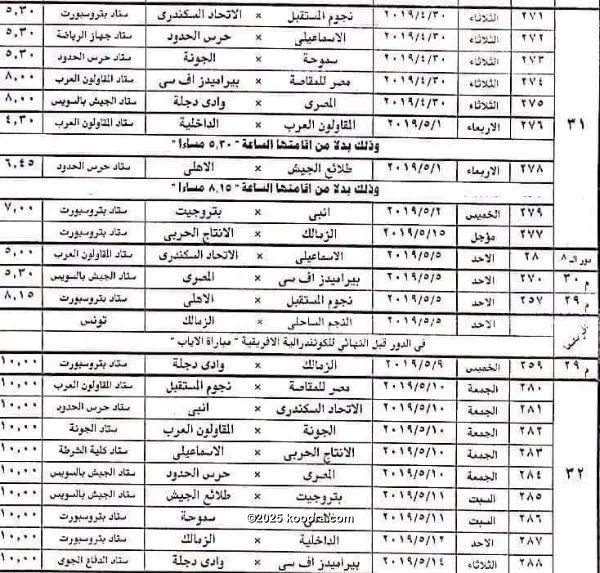 ٢٧١ الثلاثاء ٢٠١٩/٤/٣٠ نجوم المستقبل × الاتحاد السكندرى ستاد بتروسبورت ٥,٣٠
٢٧٢ الثلاثاء ٢٠١٩/٤/٣٠ الاسماعيلى × حرس الحدود ستاد جهاز الرياضة ٥,٣٠
٢٧٣ الثلاثاء ٢٠١٩/٤/٣٠ سموحة × الجونة ستاد بتروسبورت ٥,٣٠
٢٧٤ الثلاثاء ٢٠١٩/٤/٣٠ مصر للمقاصة × بيراميدز اف سى ستاد المقاولون العرب ٨,٠٠
٢٧٥ الثلاثاء ٢٠١٩/٤/٣٠ المصرى × وادى دجلة ستاد الجيش بالسويس ٨,٠٠
٣١ ٢٧٦ الاربعاء ٢٠١٩/٥/١ المقاولون العرب × الداخلية ستاد المقاولون العرب ٤,٣٠
وذلك بدلا من اقامتها الساعة " ٥,٣٠ مساءا "
٢٧٨ الاربعاء ٢٠١٩/٥/١ طلائع الجيش × الاهلى ستاد حرس الحدود ٦,٤٥
وذلك بدلا من اقامتها الساعة " ٨,١٥ مساءا "
٢٧٩ الخميس ٢٠١٩/٥/٢ انبى × بتروجيت ستاد بتروسبورت ٧,٠٠
٢٧٧ مؤجل ٢٠١٩/٥/١٥ الزمالك × الانتاج الحربى ستاد بتروسبورت
دور الـ ٨ ٢٨ الاحد ٢٠١٩/٥/٥ الاسماعيلى × الاتحاد السكندرى ستاد المقاولون العرب ٥,٠٠
م ٣٠ ٢٧٠ الاحد ٢٠١٩/٥/٥ بيراميدز اف سى × المصرى ستاد الجيش بالسويس ٥,٣٠
م ٢٩ ٢٥٧ الاحد ٢٠١٩/٥/٥ نجوم المستقبل × الاهلى ستاد بتروسبورت ٨,١٥
الاحد ٢٠١٩/٥/٥ النجم الساحلى × الزمالك تونس
فى الدور قبل النهائي للكونفدرالية الافريقية " مباراة الاياب "
م ٢٩ ٢٥٩ الخميس ٢٠١٩/٥/٩ الزمالك × وادى دجلة ستاد بتروسبورت ١٠,٠٠
٢٨٠ الجمعة ٢٠١٩/٥/١٠ مصر للمقاصة × نجوم المستقبل ستاد المقاولون العرب ١٠,٠٠
٢٨١ الجمعة ٢٠١٩/٥/١٠ الاتحاد السكندرى × انبى ستاد حرس الحدود ١٠,٠٠
٢٨٢ الجمعة ٢٠١٩/٥/١٠ الجونة × المقاولون العرب ستاد الجونة ١٠,٠٠
٢٨٣ الجمعة ٢٠١٩/٥/١٠ الانتاج الحربى × الاسماعيلى ستاد كلية الشرطة ١٠,٠٠
٣٢ ٢٨٤ الجمعة ٢٠١٩/٥/١٠ المصرى × حرس الحدود ستاد الجيش بالسويس ١٠,٠٠
٢٨٥ السبت ٢٠١٩/٥/١١ بتروجيت × طلائع الجيش ستاد الجيش بالسويس ١٠,٠٠
٢٨٦ السبت ٢٠١٩/٥/١١ × سموحة ستاد بتروسبورت ١٠,٠٠
©2025 kooora.com
٢٨٧ الاحد ٢٠١٩/٥/١٢ الداخلية × الزمالك ستاد بتروسبورت ١٠,٠٠
٢٨٨ الثلاثاء ٢٠١٩/٥/١٤ بيراميدز اف سى × وادى دجلة ستاد الدفاع الجوى ١٠,٠٠